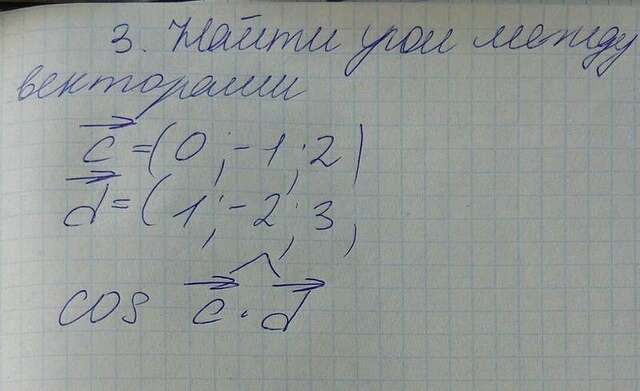 3. Найти угол между
векторами
c⃗ = (0; -1; 2)
d⃗ = (1; -2; 3,
cos c⃗ · d⃗